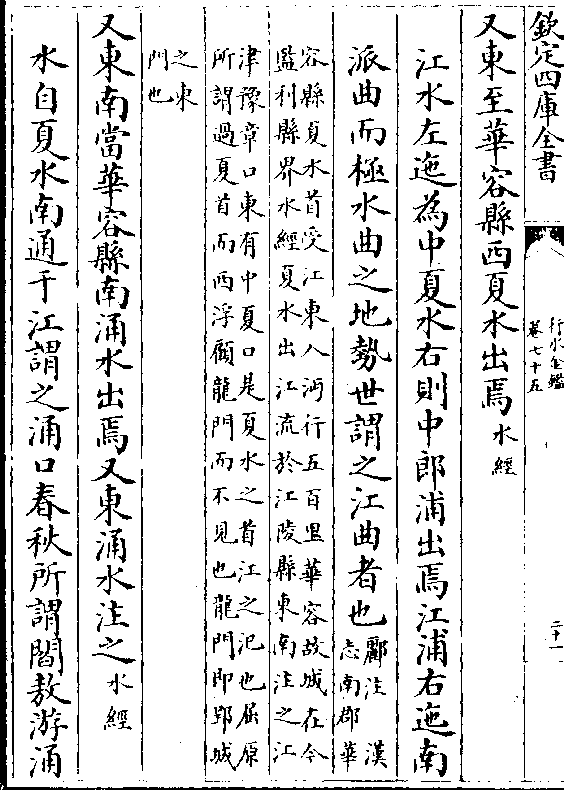 欽定四庫全書
行水金鑑
卷七十五
二十一
又東至華容縣西夏水出焉水經
江水左迤為中夏水右則中郎浦出焉江浦右迤南
派曲而極水曲之地勢世謂之江曲者也
酈注　漢
志南郡華
容縣夏水首受江東入沔行五百里華容故城在今
監利縣界水經夏水出江流於江陵縣東南注之江
津豫章口東有中夏口是夏水之首江之汜也屈原
所謂過夏首而西浮顧龍門而不見也龍門即郢城
之東
門也
又東南當華容縣南涌水出焉又東涌水注之水經
水自夏水南通于江謂之涌口春秋所謂閻敖游涌